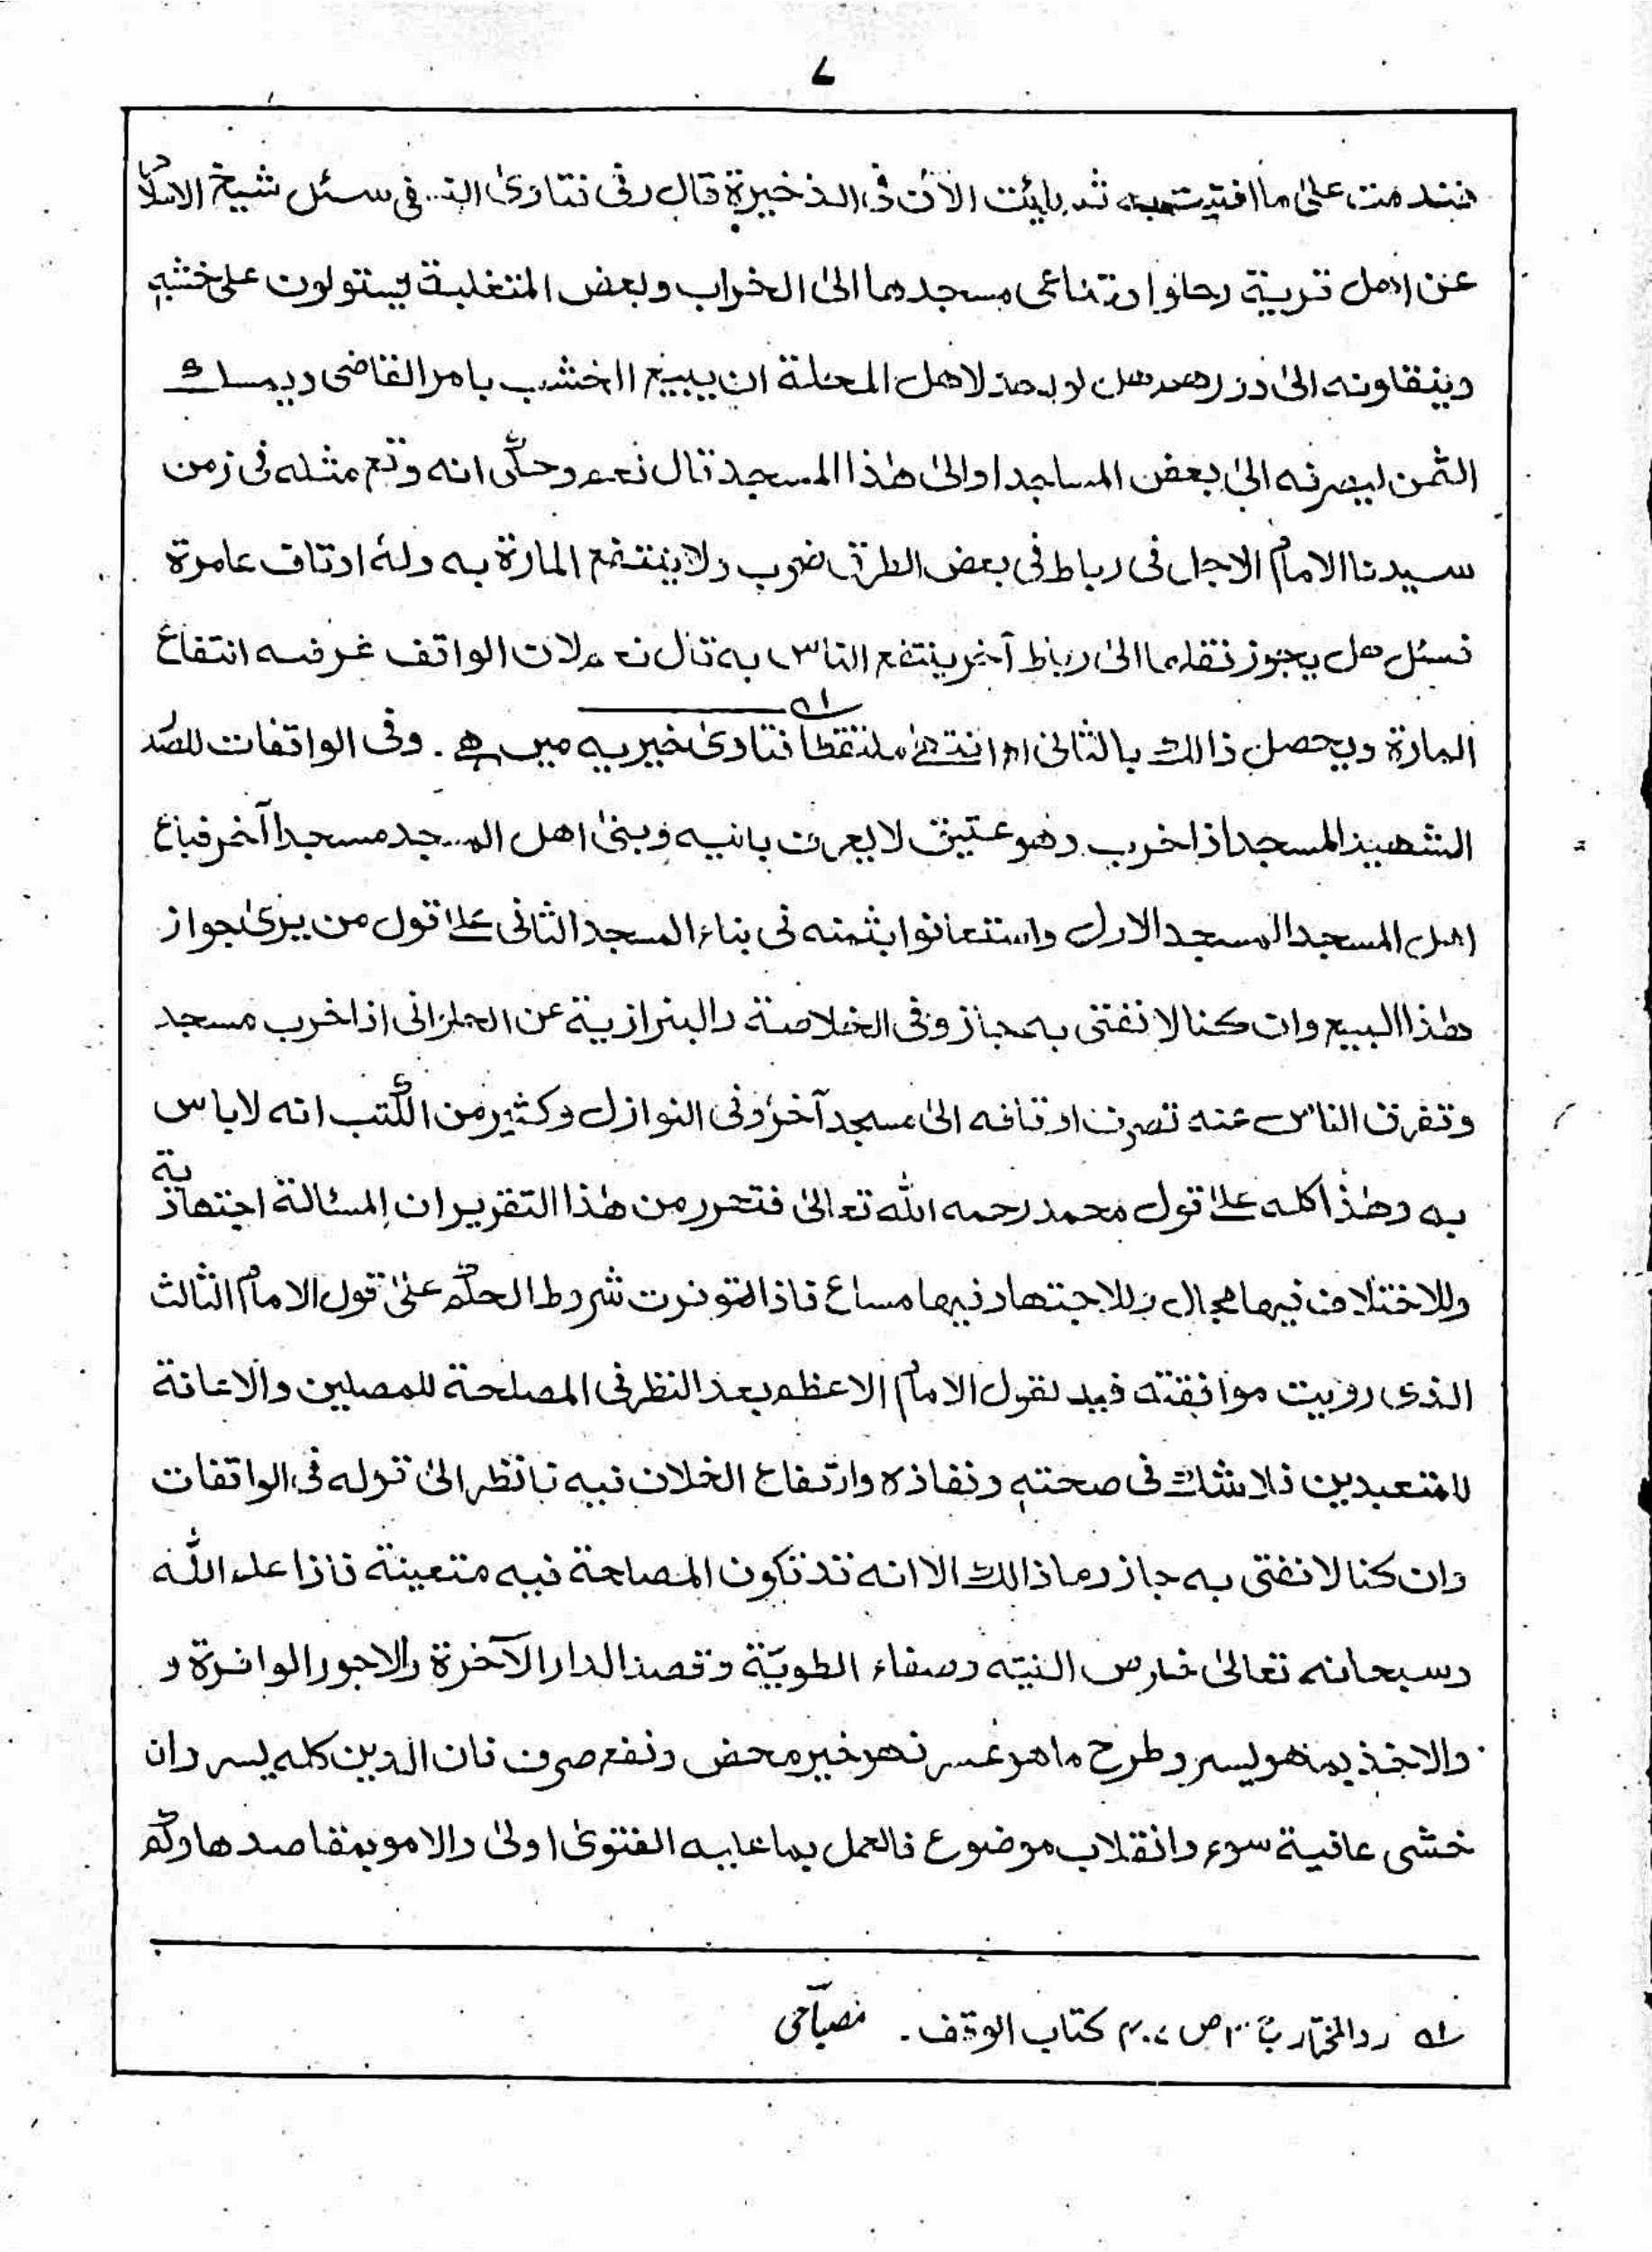 ۷
فندمت علیٰ ما افتیت به ثم رایت الاٰن فی الذخیرة قال وفی فتاویٰ النسفی سئل شیخ الاسلام
عن اهل قریة رحلوا وتداعی مسجدها الیٰ الخراب وبعض المتغلبة یستولون علیٰ خشبه
وینقلونه الیٰ دورهم هل لواحد لاهل المحلة ان یبیع الخشب بامر القاضی ویمسك
الثمن لیصرفه الیٰ بعض المساجد او الیٰ هٰذا المسجد قال نعم وحکی انه وقع مثله فی زمن
سیدنا الامام الاجل فی رباط فی بعض الطرق خرب ولا ینتفع المارة به وله اوقاف عامرة
فسئل هل یجوز نقلها الیٰ رباط آخر ینتفع الناس به قال نعم لان الواقف غرضه انتفاع
المارة ویحصل ذالك بالثانی اھ انتهیٰ ملتقطا فتاویٰ خیریه میں ہے ۔ وفی الواقعات للصدر
الشهید المسجد اذا خرب وهو عتیق لا یعرف بانیه وبنیٰ اهل المسجد مسجدا آخر فباع
اهل المسجد المسجد الاول واستعانوا بثمنه فی بناء المسجد الثانی علیٰ قول من یریٰ جواز
هٰذا البیع وان کنا لا نفتی به جاز وفی الخلاصة والبزازیة عن الحلوانی اذا خرب مسجد
وتفرق الناس عنه تصرف اوقافه الیٰ مسجد آخر وفی النوازل وکثیر من الکتب انه لا باس
به وهٰذا کله علیٰ قول محمد رحمه الله تعالیٰ فتحرر من هٰذا التقریر ان المسئالة اجتهادیة
وللاختلاف فیها مجال وللاجتهاد فیها مساغ فاذا توفرت شروط الحکم علیٰ قول الامام الثالث
الذی رویت موافقته فیه لقول الامام الاعظم بعد النظر فی المصلحة للمصلین والاعانة
للمتعبدین فلا شك فی صحته ونفاذه وارتفاع الخلاف فیه فانظر الیٰ قوله فی الواقعات
وان کنا لا نفتی به جاز وما ذالك الا انه قد تکون المصلحة فیه متعینة فاذا علم الله
وسبحانه تعالیٰ خلوص النیته وصفاء الطویّة وقصد الدار الآخرة والاجور الوافرة و
والاخذ بما هو یسر وطرح ما هو عسر فهو خیر محض ونفع صرف فان الدین کله یسر وان
خشی عاقبة سوء وانقلاب موضوع فالعمل بما علیه الفتویٰ اولیٰ والامو بمقاصدها وکم
ـلـہ ردالمختار ج ۳ ص ۴۰۷ کتاب الوقف ۔ مصباحی